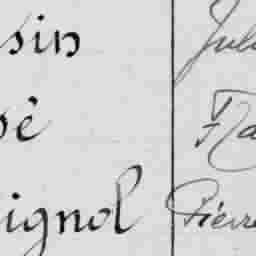 sin Jul
sè Ra
ignol Pierre